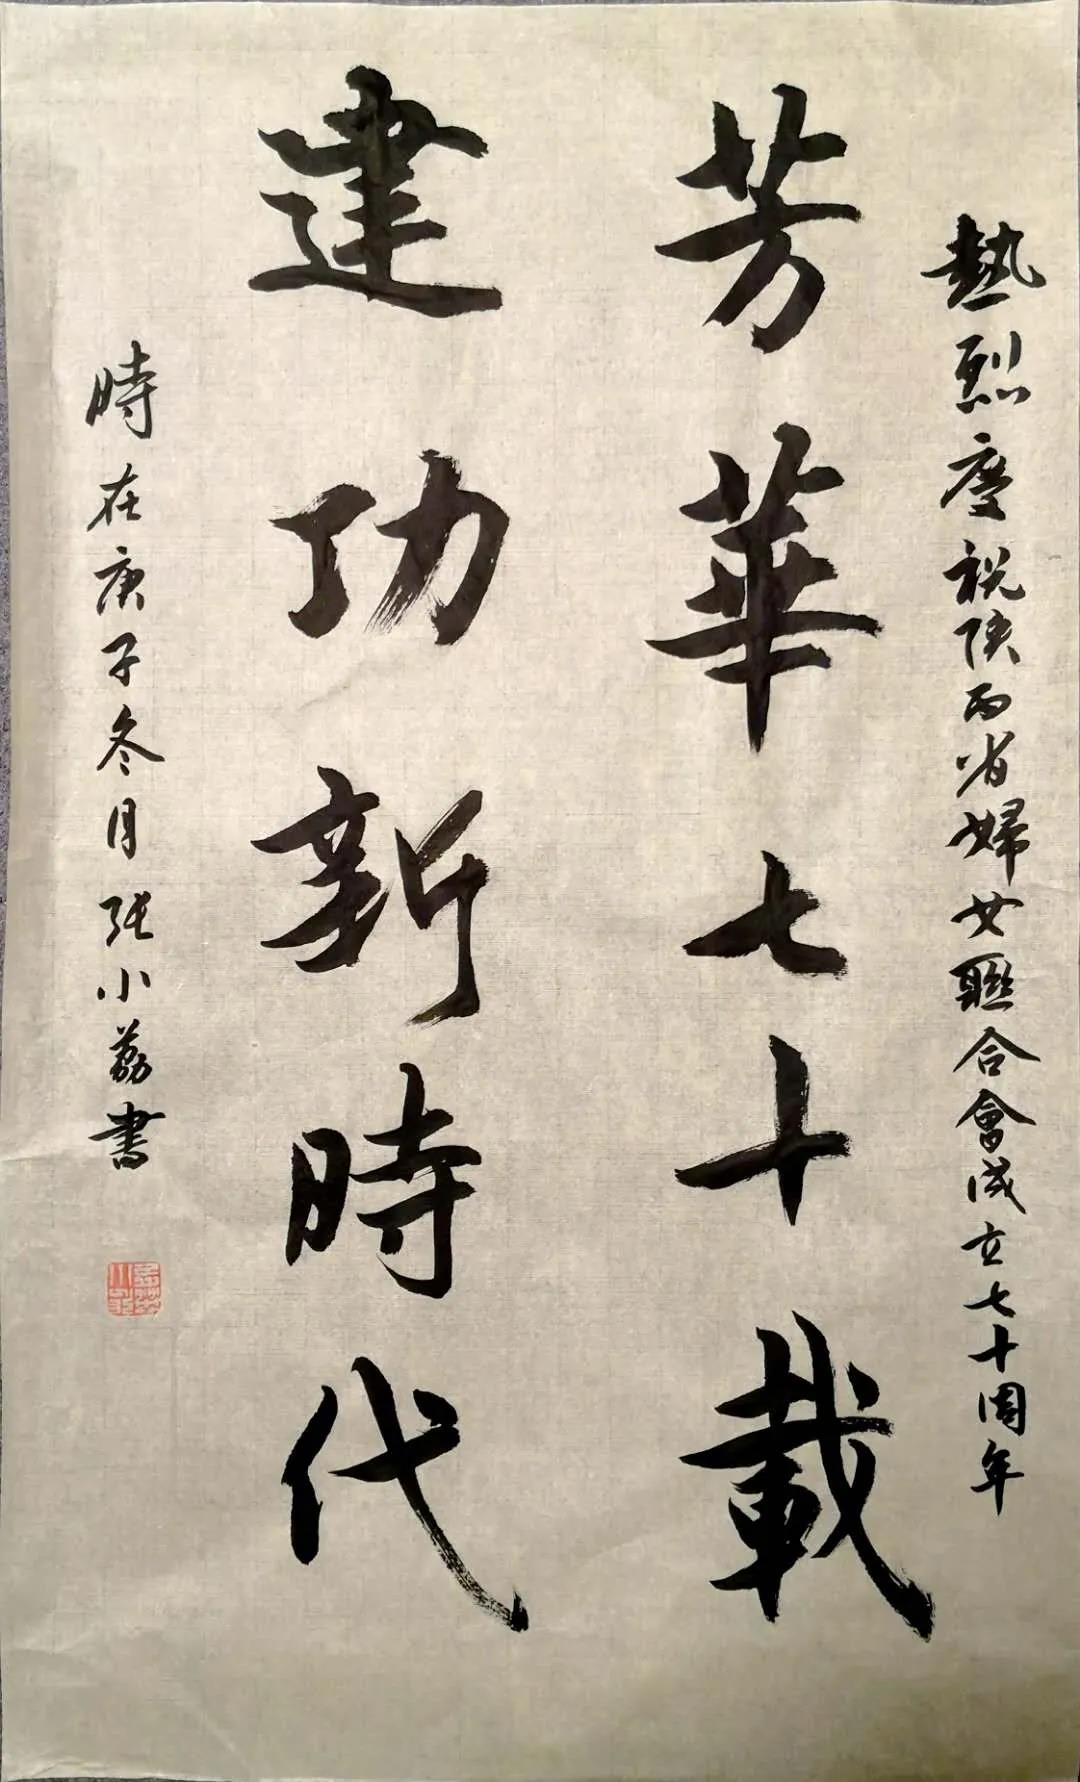 熱烈慶祝陝西省婦女聯合會成立七十周年
芳華七十載
建功新時代
時在庚子冬月張小荔書